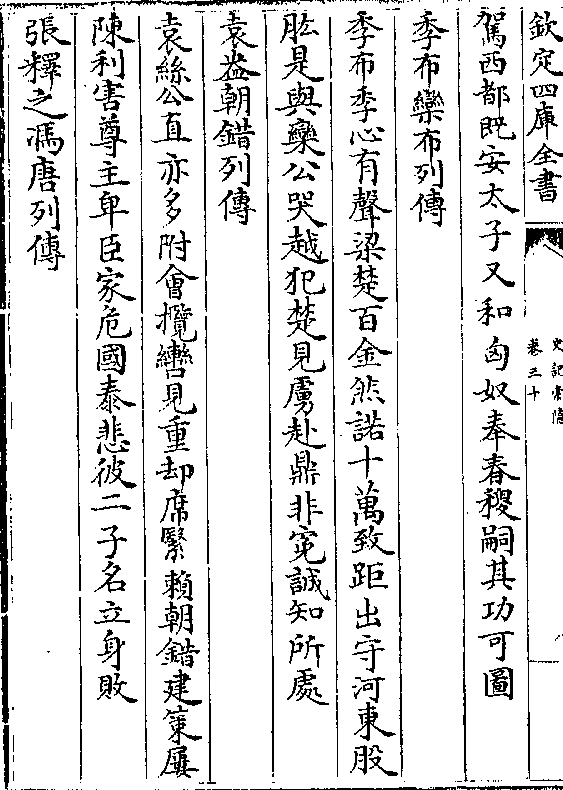 欽定四庫全書
史記索隱
卷三十
駕西都既安太子又和匈奴奉春稷嗣其功可圖
季布欒布列傳
季布季心有聲梁楚百金然諾十萬致距出守河東股
肱是與欒公哭越犯楚見虜赴鼎非寃誠知所處
袁盎朝錯列傳
袁絲公直亦多附會攬轡見重却席緊賴朝錯建策屢
陳利害尊主卑臣家危國泰悲彼二子名立身敗
張釋之馮唐列傳